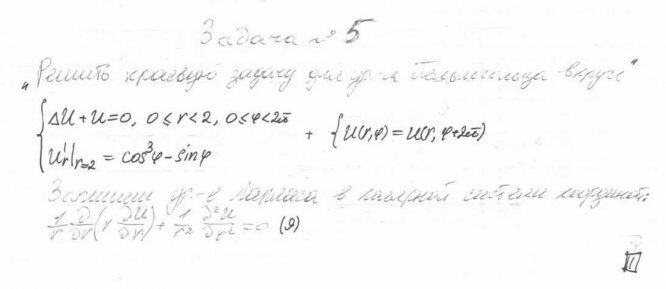 Задача № 5
"Решить краевую задачу для ур-я Гельмгольца в круге"
ΔU + U = 0, 0 ≤ r < 2, 0 ≤ φ < 2π
U'r|r=2 = cos³φ - sinφ + {U(r,φ) = U(r,φ+2π)
Запишем ур-е Лапласа в полярной системе координат:
1/r ∂/∂r (r ∂U/∂r) + 1/r² ∂²U/∂φ² = 0